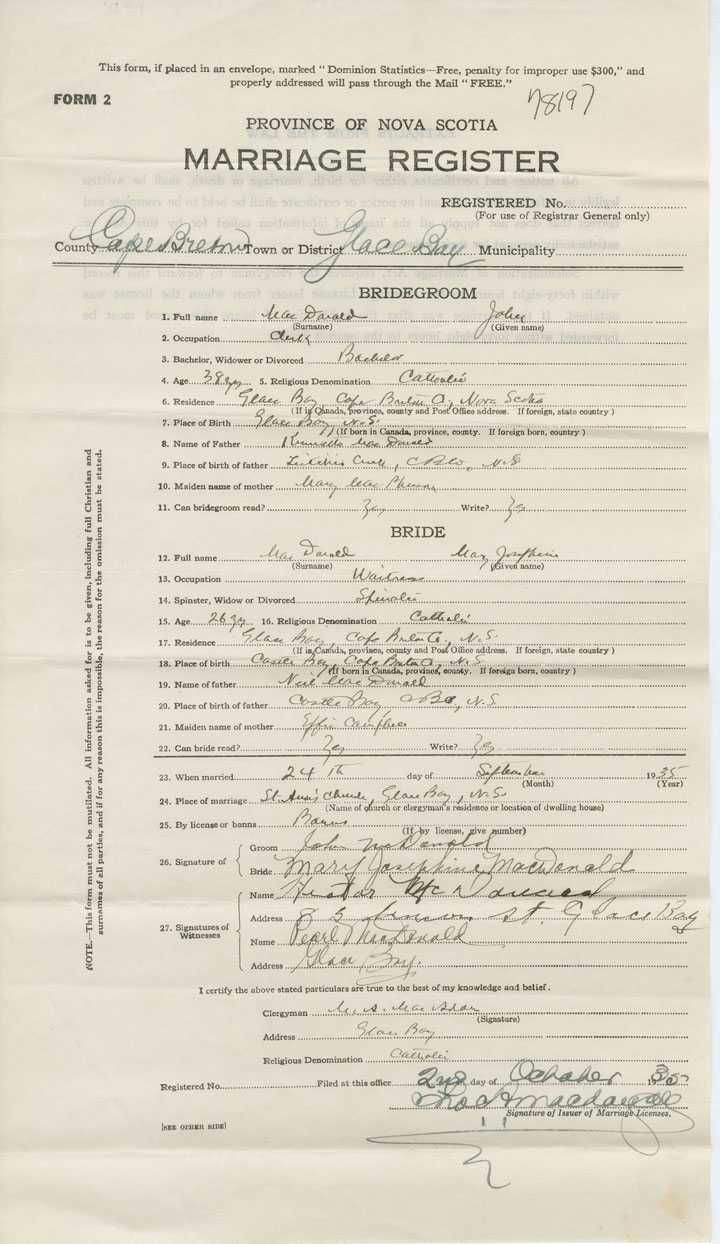 This form, if placed in an envelope, marked " Dominion Statistics—Free, penalty for improper use $300," and
properly addressed will pass through the Mail " FREE."
FORM 2
78197
PROVINCE OF NOVA SCOTIA
MARRIAGE REGISTER
REGISTERED No.
(For use of Registrar General only)
County Cape Breton Town or District Glace Bay Municipality
BRIDEGROOM
1. Full name Mac Donald John
(Surname) (Given name)
2. Occupation Clerk
3. Bachelor, Widower or Divorced Bachelor
4. Age 38 yrs 5. Religious Denomination Catholic
6. Residence Glace Bay, Cape Breton Co, Nova Scotia
(If in Canada, province, county and Post Office address. If foreign, state country)
7. Place of Birth Glace Bay, N.S.
(If born in Canada, province, county. If foreign born, country)
8. Name of Father Kenneth Mac Donald
9. Place of birth of father Leitches Creek, C Bto, N.S
10. Maiden name of mother Mary Mac Pherson
11. Can bridegroom read? Yes Write? Yes
BRIDE
12. Full name Mac Donald Mary Josephine
(Surname) (Given name)
13. Occupation Waitress
14. Spinster, Widow or Divorced Spinster
15. Age 26 yrs 16. Religious Denomination Catholic
17. Residence Glace Bay, Cape Breton Co., N.S.
(If in Canada, province, county and Post Office address. If foreign, state country)
18. Place of birth Castle Bay, Cape Breton Co., N.S.
(If born in Canada, province, county. If foreign born, country)
19. Name of father Neil Mac Donald
20. Place of birth of father Castle Bay, N.S
21. Maiden name of mother Effie Campbell
22. Can bride read? Yes Write? Yes
23. When married 24 th day of September 1935
(Month) (Year)
24. Place of marriage St. Ann's Church, Glace Bay, N.S.
(Name of church or clergyman's residence or location of dwelling house)
25. By license or banns Banns
(If by license, give number)
26. Signature of
Groom John McDonald
Bride Mary Josephine MacDonald
27. Signatures of Witnesses
Name Hector McDonald
Address 85 st. Glace Bay
Name Pearl MacDonald
Address Glace Bay.
I certify the above stated particulars are true to the best of my knowledge and belief.
Clergyman M. A. Mac Adam
(Signature)
Address Glace Bay
Religious Denomination Catholic
Registered No. Filed at this office 2nd day of October 1935
Signature of Issuer of Marriage Licenses.
[SEE OTHER SIDE]
NOTE.—This form must not be mutilated. All information asked for is to be given, including full Christian and
surnames of all parties, and if for any reason this is impossible, the reason for the omission must be stated.